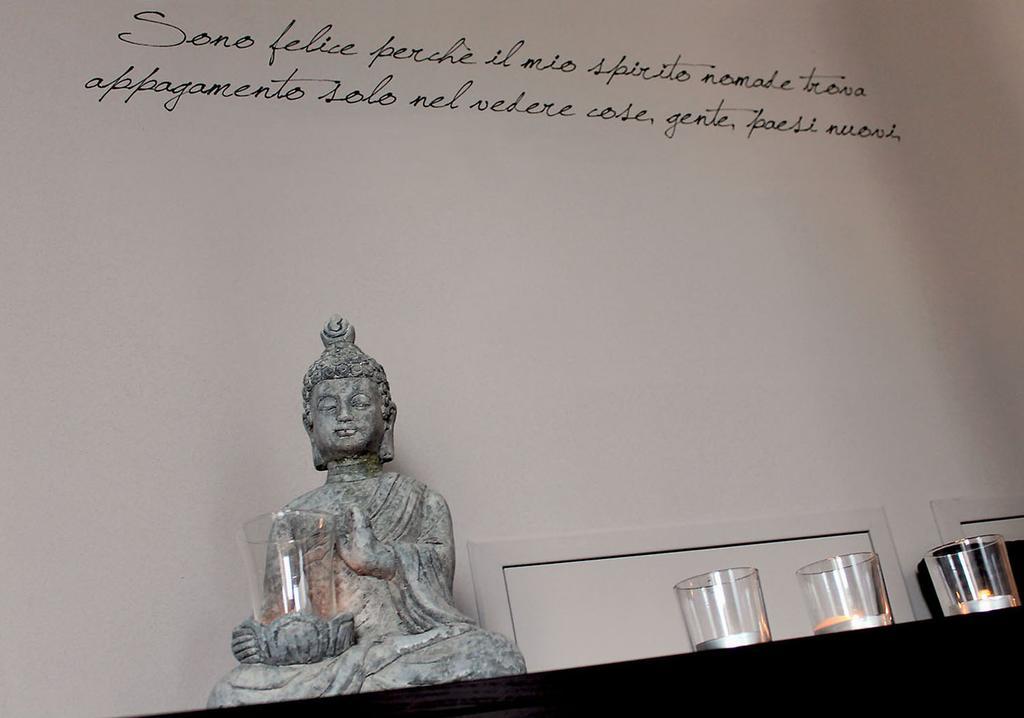 Sono felice perchè il mio spirito nomade trova
appagamento solo nel vedere cose, gente, paesi nuovi,